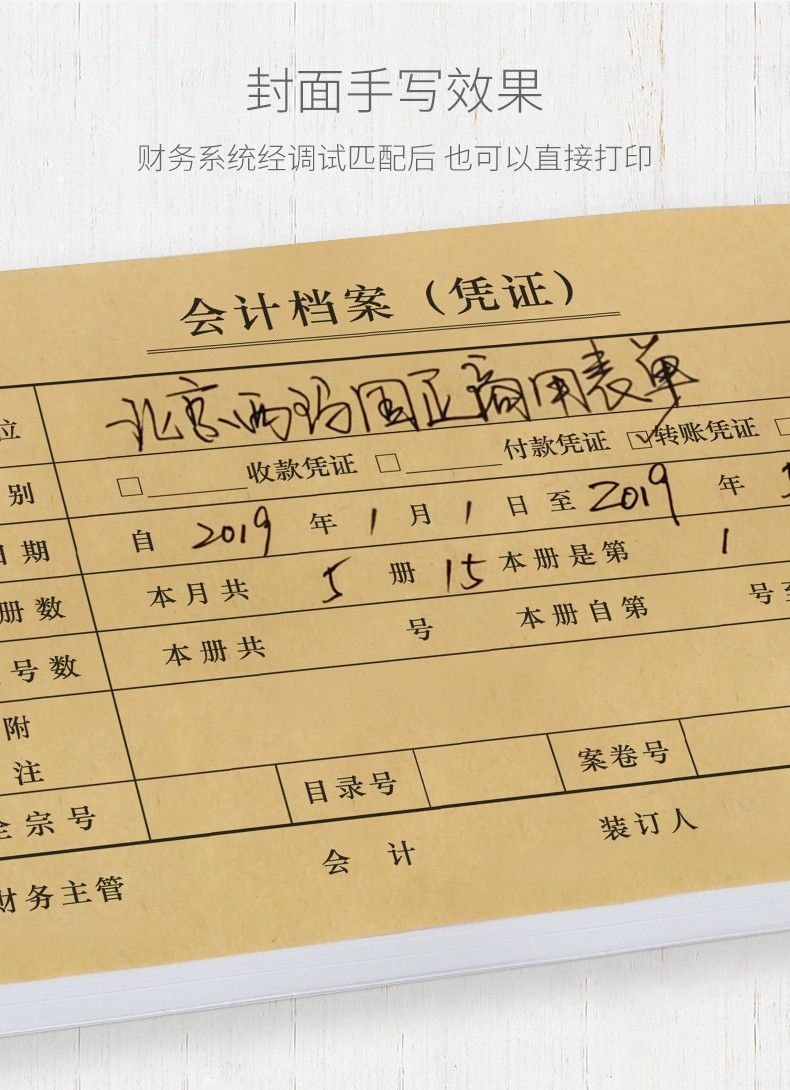 封面手写效果
财务系统经调试匹配后 也可以直接打印
会计档案（凭证）
位 北京西玛国正商用表单
别 □ 收款凭证 □ 付款凭证 ☑转账凭证 □
日期 自 2019 年 1 月 1 日至 2019 年
册数 本月共 5 册 15 本册是第 1
号数 本册共 号 本册自第 号至
附
注
全宗号 目录号 案卷号
财务主管 会 计 装订人